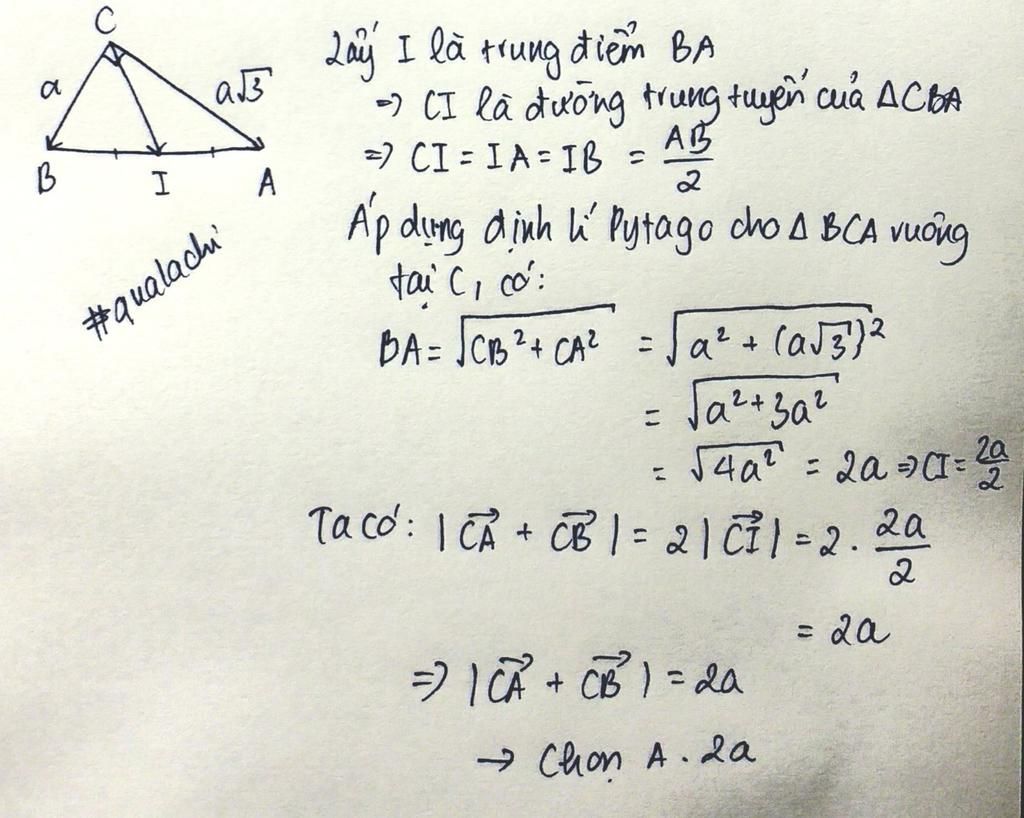 C
a
a√3
B
I
A
#qualachi
Lấy I là trung điểm BA
=> CI là đường trung tuyến của ΔCBA
=> CI = IA = IB = AB/2
Áp dụng định lí Pytago cho Δ BCA vuông
tại C, có:
BA = √(CB² + CA²) = √(a² + (a√3)²)
= √(a² + 3a²)
= √(4a²) = 2a => CI = 2a/2
Ta có: |CA→ + CB→| = 2|CI→| = 2 . 2a/2
= 2a
=> |CA→ + CB→| = 2a
→ Chọn A . 2a